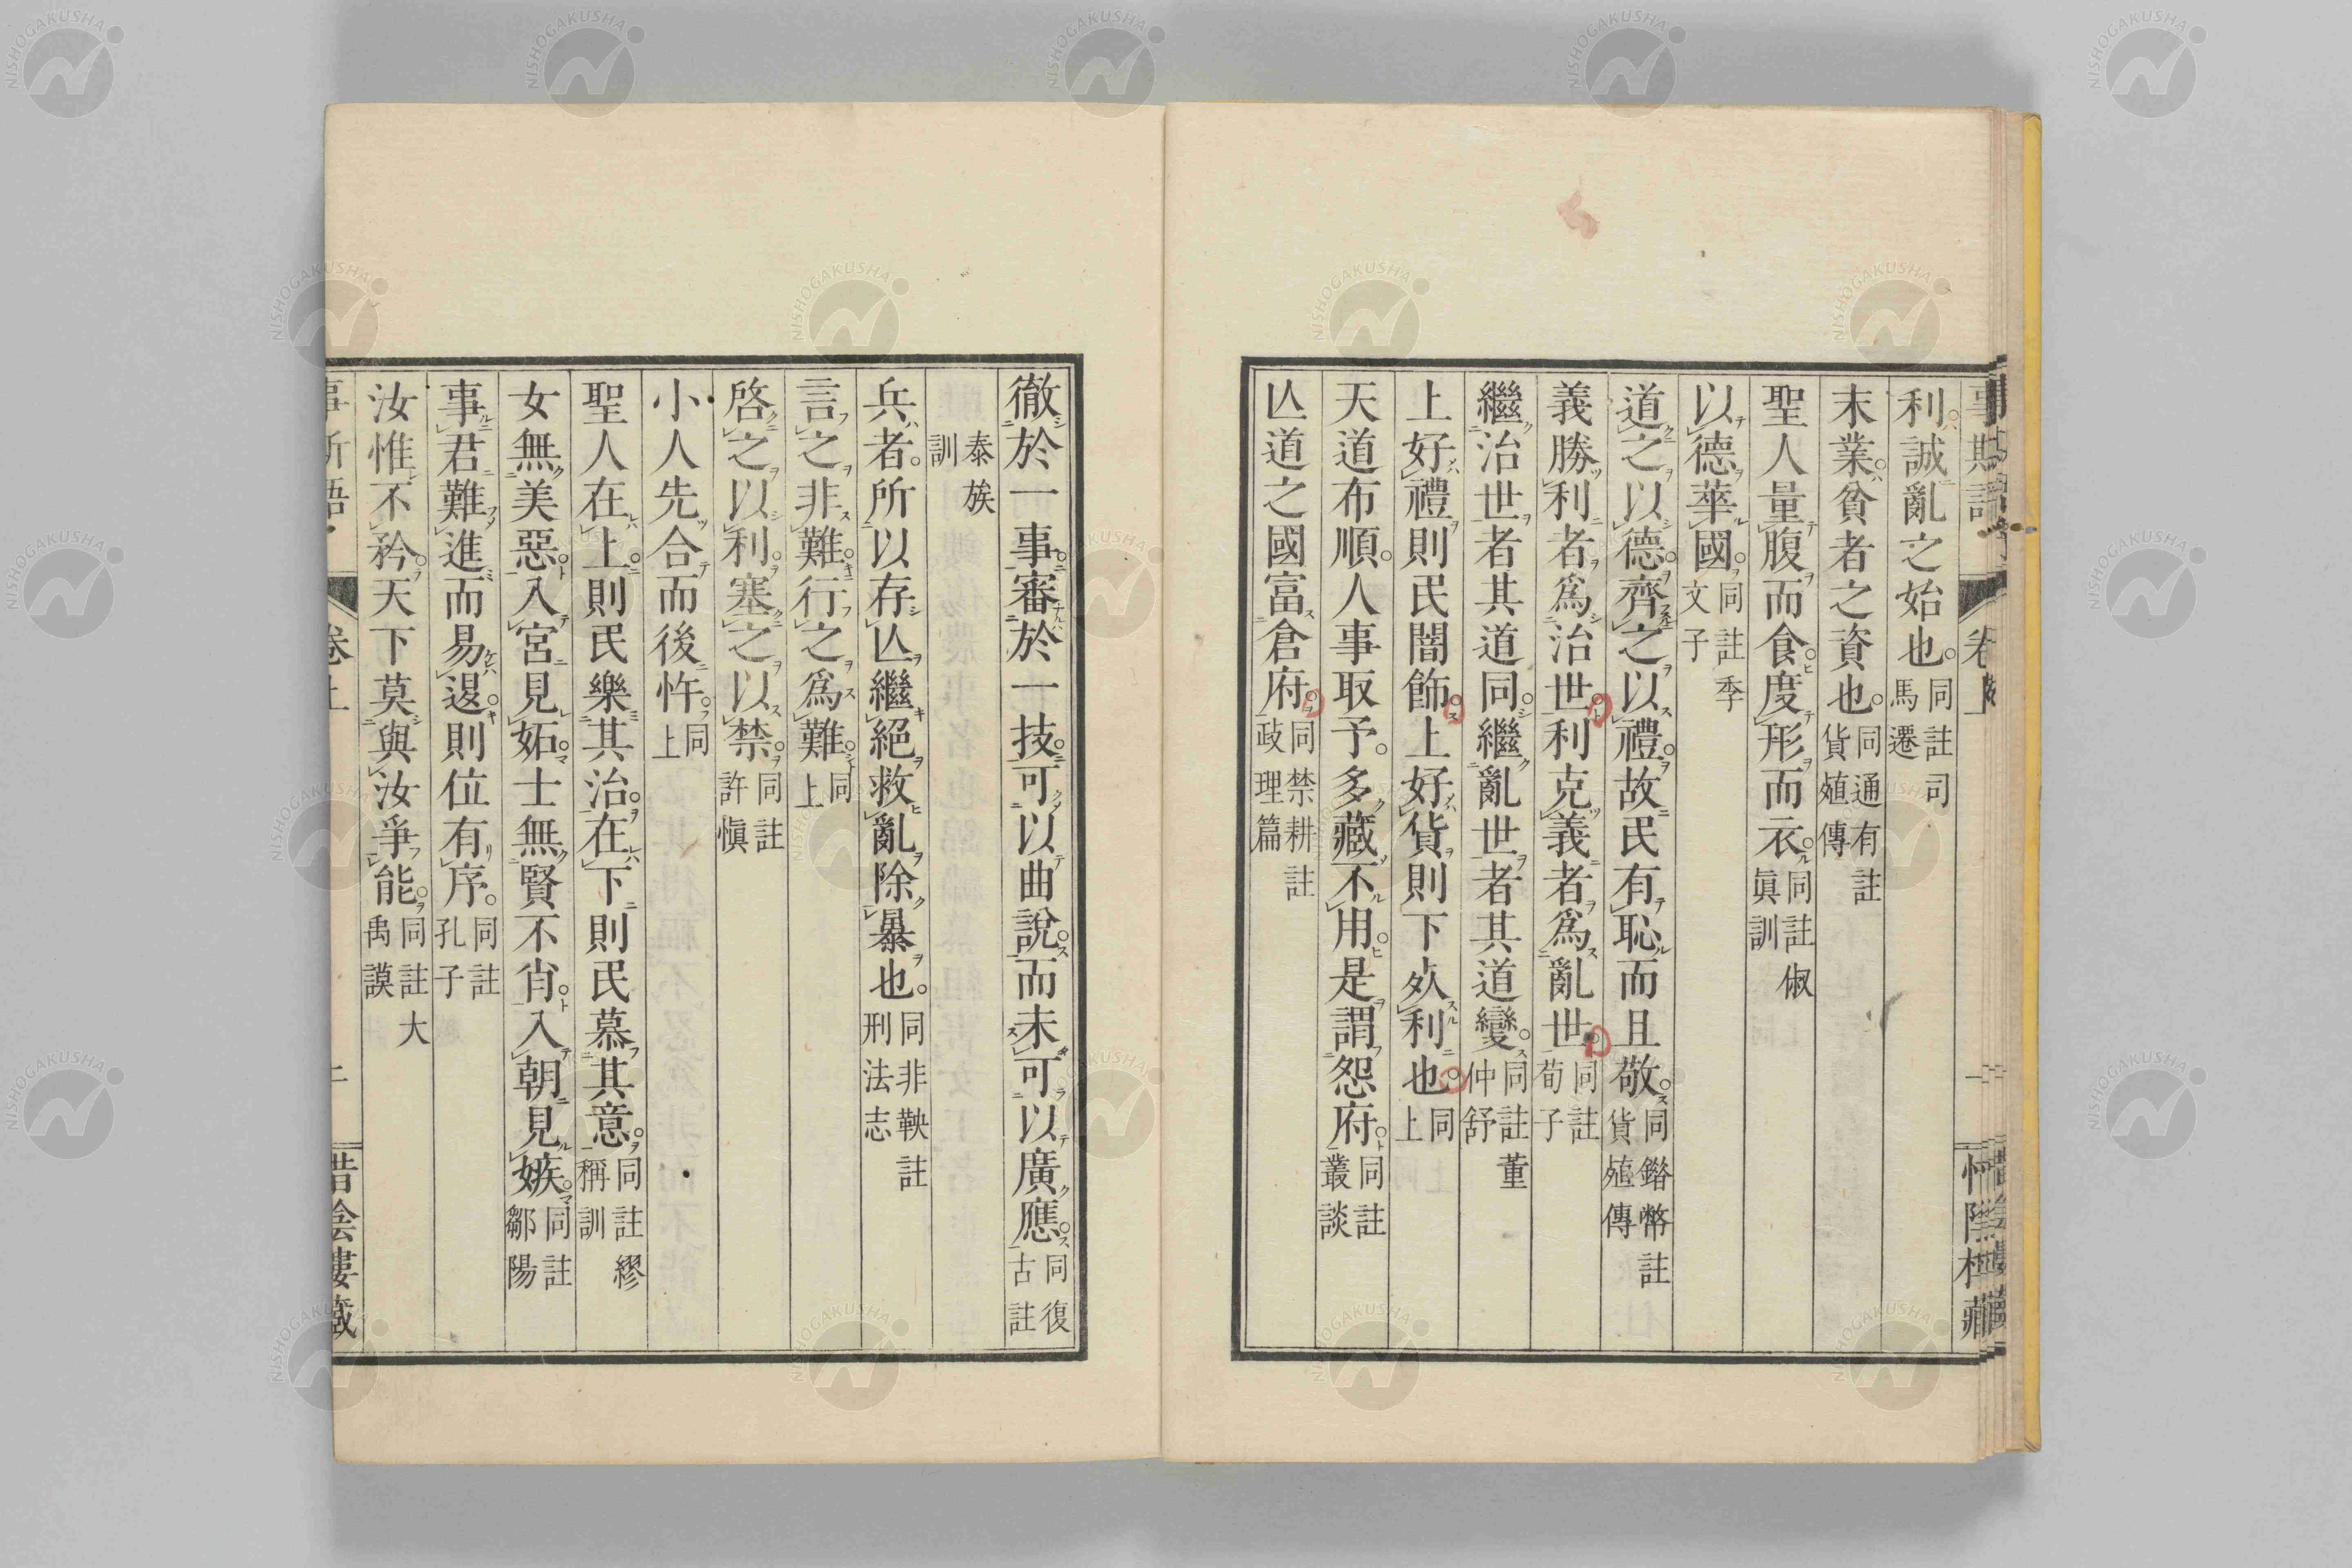 利誠亂之始也同註司馬遷
末業貧者之資也同通有註貨殖傳
聖人量腹而食度形而衣同註俶眞訓
以德華國同註季文子
道之以德齊之以禮故民有恥而且敬同鐕幣註貨殖傳
義勝利者爲治世利克義者爲亂世同註荀子
繼治世者其道同繼亂世者其道變同註董仲舒
上好禮則民闇飾上好貨則下死利也同上
天道布順人事取予多藏不用是謂怨府同註叢談
亾道之國富倉府同禁耕註政理篇
徹於一事審於一技可以曲說而未可以廣應同復古註
泰族訓
兵者所以存亾繼絕救亂除暴也同非鞅註刑法志
言之非難行之爲難同上
啓之以利塞之以禁同註許愼
小人先合而後忤同上
聖人在上則民樂其治在下則民慕其意同註繆稱訓
女無美惡入宮見妬士無賢不肖入朝見嫉同註鄒陽
事君難進而易退則位有序同註孔子
汝惟不矜天下莫與汝爭能同註大禹謨
卷上
惜陰樓藏
NISHOGAKUSHA